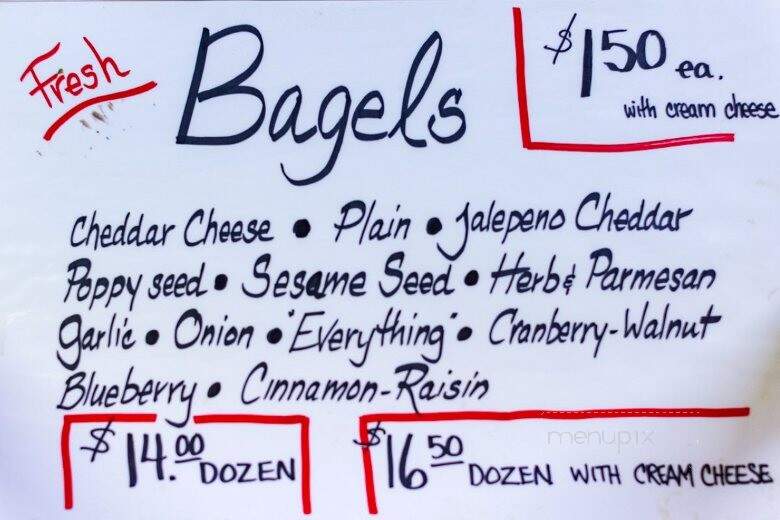 Fresh
Bagels
$1.50 ea.
with cream cheese
Cheddar Cheese • Plain • Jalepeno Cheddar
Poppy seed • Sesame Seed • Herb & Parmesan
Garlic • Onion • "Everything" • Cranberry-Walnut
Blueberry • Cinnamon-Raisin
$14.00 DOZEN
$16 50 DOZEN WITH CREAM CHEESE
menupix